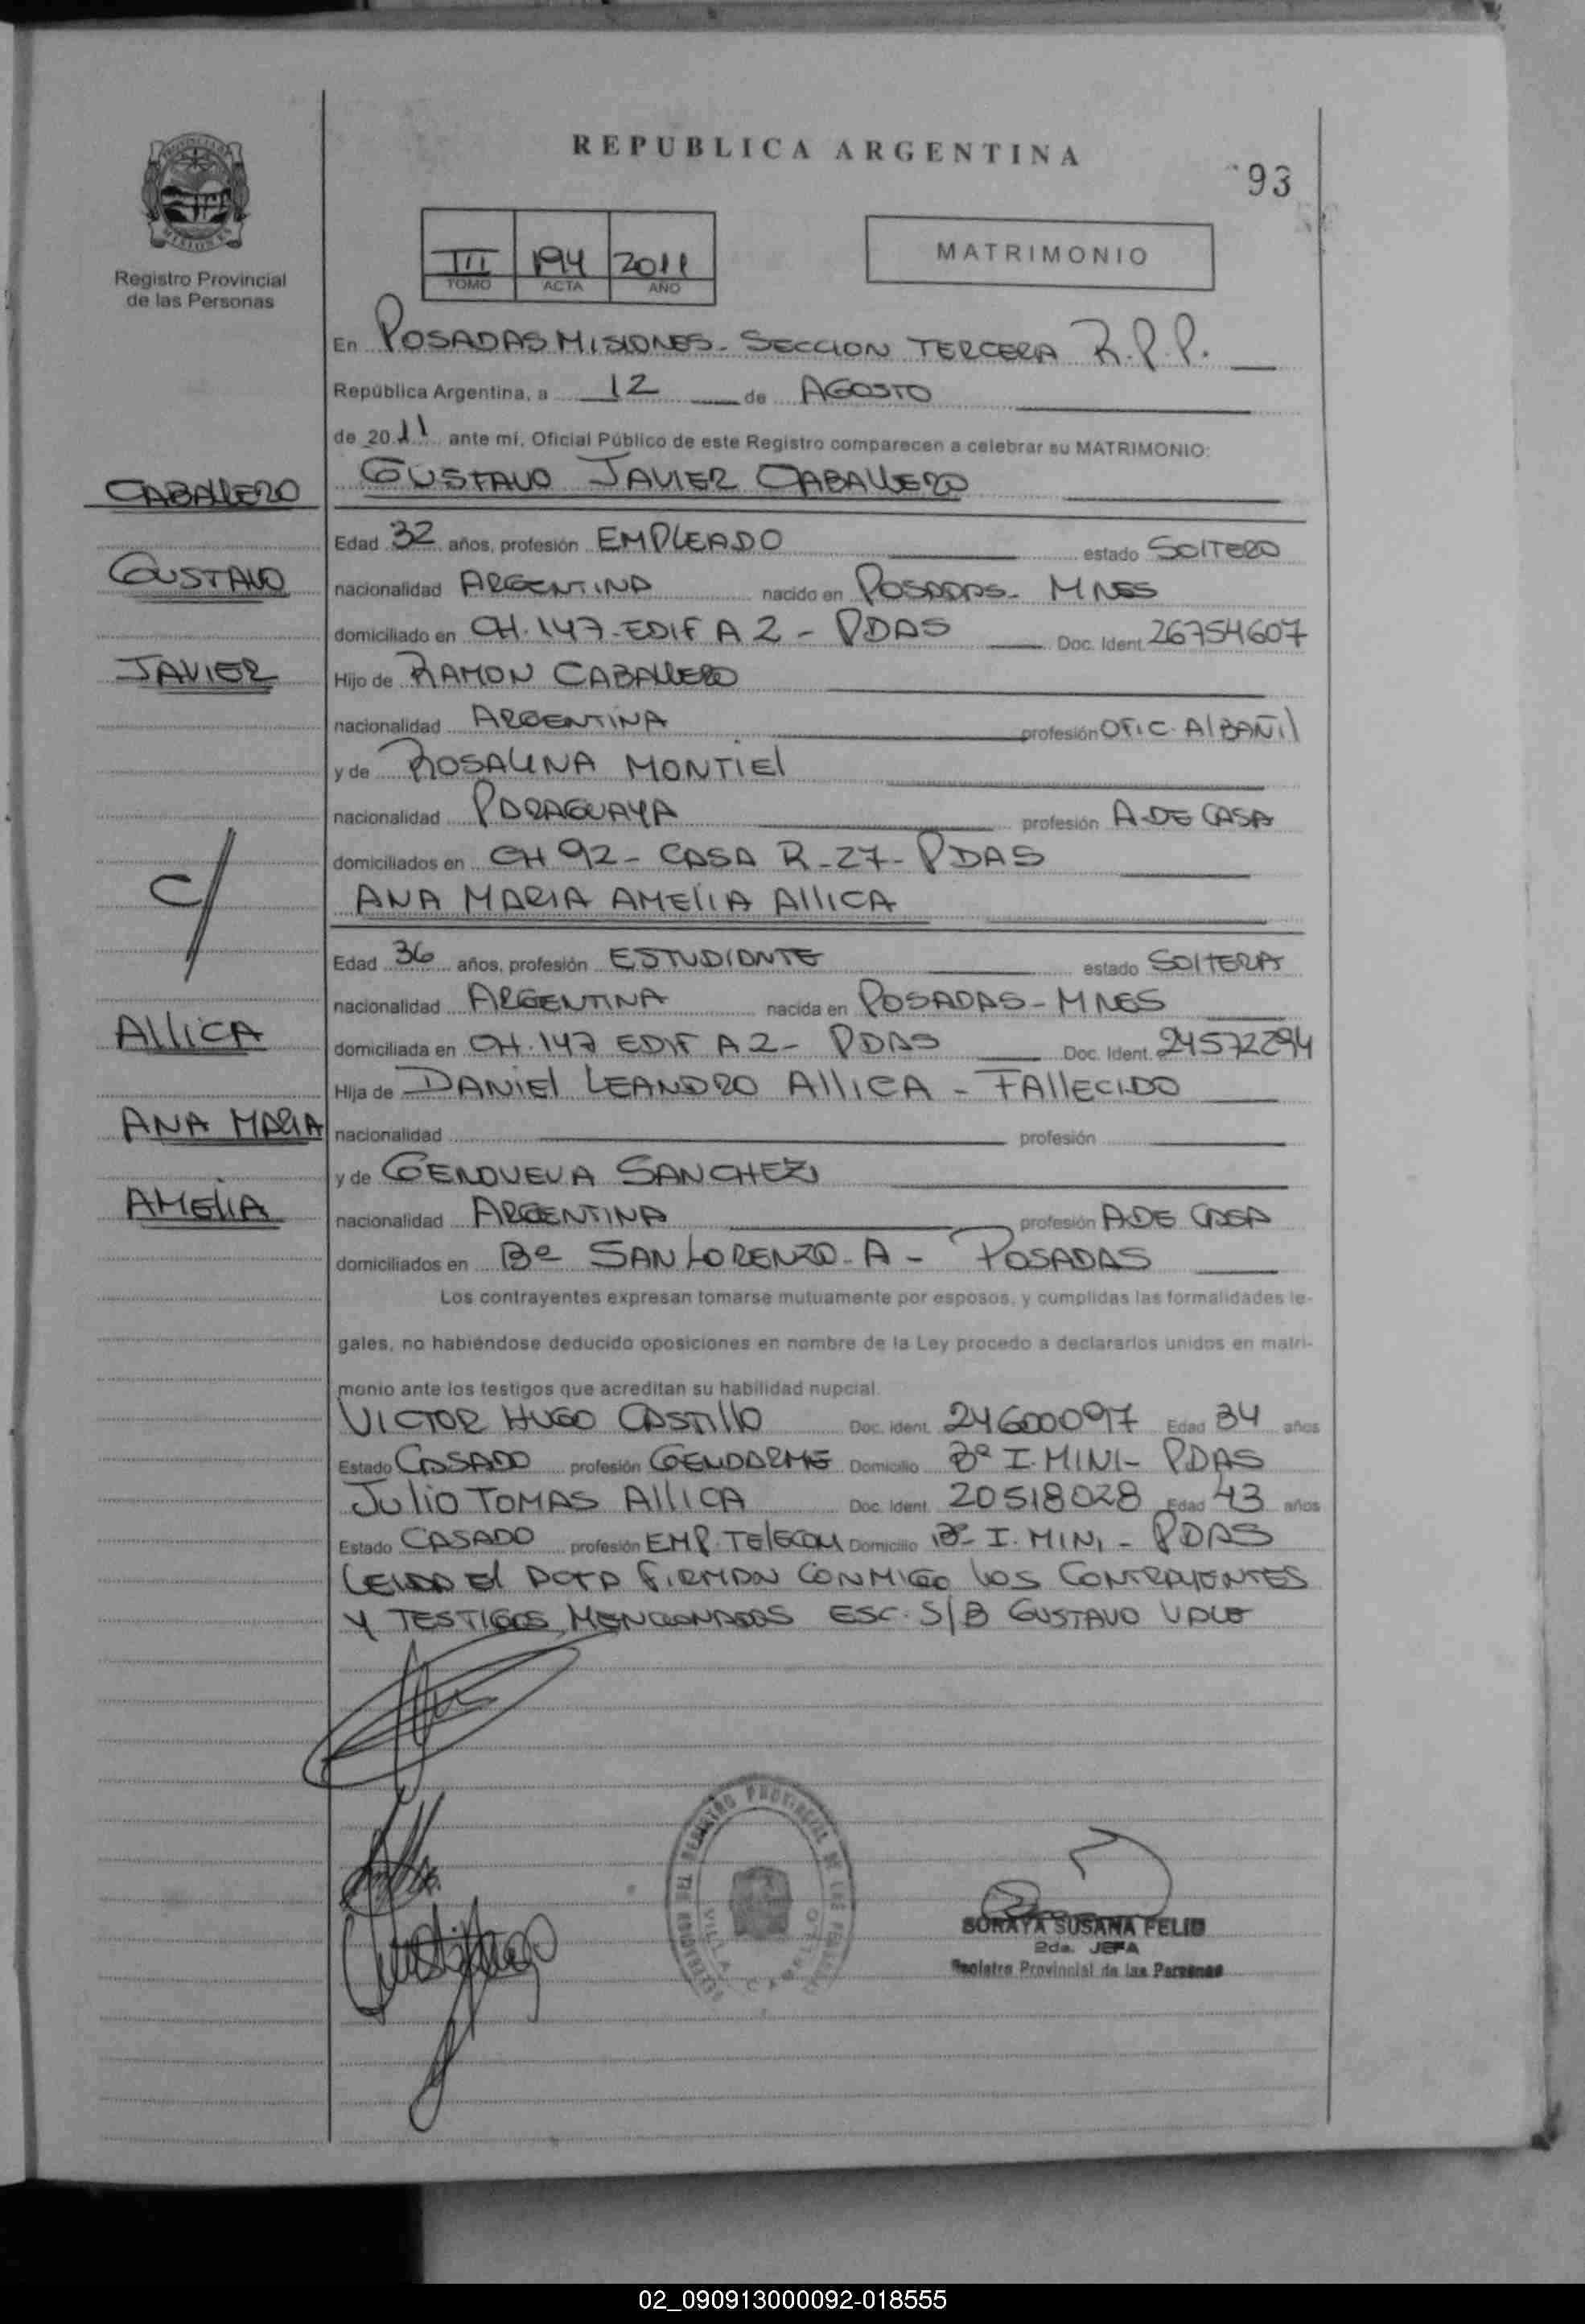 REPUBLICA ARGENTINA
93
PROVINCIA DE
MISIONES
Registro Provincial
de las Personas
III 194 2011
TOMO ACTA AÑO
MATRIMONIO
En POSADAS MISIONES - SECCION TERCERA R.P.P.
República Argentina, a 12 de AGOSTO
de 2011 ante mí, Oficial Público de este Registro comparecen a celebrar su MATRIMONIO:
CABALLERO
GUSTAVO JAVIER CABALLERO
Edad 32 años, profesión EMPLEADO estado SOLTERO
GUSTAVO
nacionalidad ARGENTINA nacido en POSADAS - MNES
domiciliado en CH. 147 - EDIF A 2 - PDAS Doc. Ident. 26754607
JAVIER
Hijo de RAMON CABALLERO
nacionalidad ARGENTINA profesión OFIC. ALBAÑIL
y de ROSALINA MONTIEL
nacionalidad PARAGUAYA profesión A.DE CASA
domiciliados en CH 92 - CASA R-27 - PDAS
C/
ANA MARIA AMELIA ALLICA
Edad 36 años, profesión ESTUDIANTE estado SOLTERA
nacionalidad ARGENTINA nacida en POSADAS - MNES
ALLICA
domiciliada en CH. 147 EDIF A 2 - PDAS Doc. Ident. 24572294
Hija de DANIEL LEANDRO ALLICA - FALLECIDO
ANA MARIA
nacionalidad profesión
y de GENOVEVA SANCHEZ
AMELIA
nacionalidad ARGENTINA profesión A.DE CASA
domiciliados en Bº SAN LORENZO - A - POSADAS
Los contrayentes expresan tomarse mutuamente por esposos, y cumplidas las formalidades le-
gales, no habiéndose deducido oposiciones en nombre de la Ley procedo a declararlos unidos en matri-
monio ante los testigos que acreditan su habilidad nupcial.
VICTOR HUGO CASTILLO Doc. Ident. 24600097 Edad 34 años
Estado CASADO profesión GENDARME Domicilio Bº I. MINI - PDAS
JULIO TOMAS ALLICA Doc. Ident. 20518028 Edad 43 años
Estado CASADO profesión EMP. TELECOM Domicilio Bº I. MINI - PDAS
LEIDA EL ACTA FIRMAN CONMIGO LOS CONTRAYENTES
Y TESTIGOS MENCIONADOS ESC. S/B GUSTAVO VALE
REGISTRO PROVINCIAL DE LAS PERSONAS
VILLA CABELLO
SORAYA SUSANA FELIB
2da. JEFA
Registro Provincial de las Personas
02_090913000092-018555